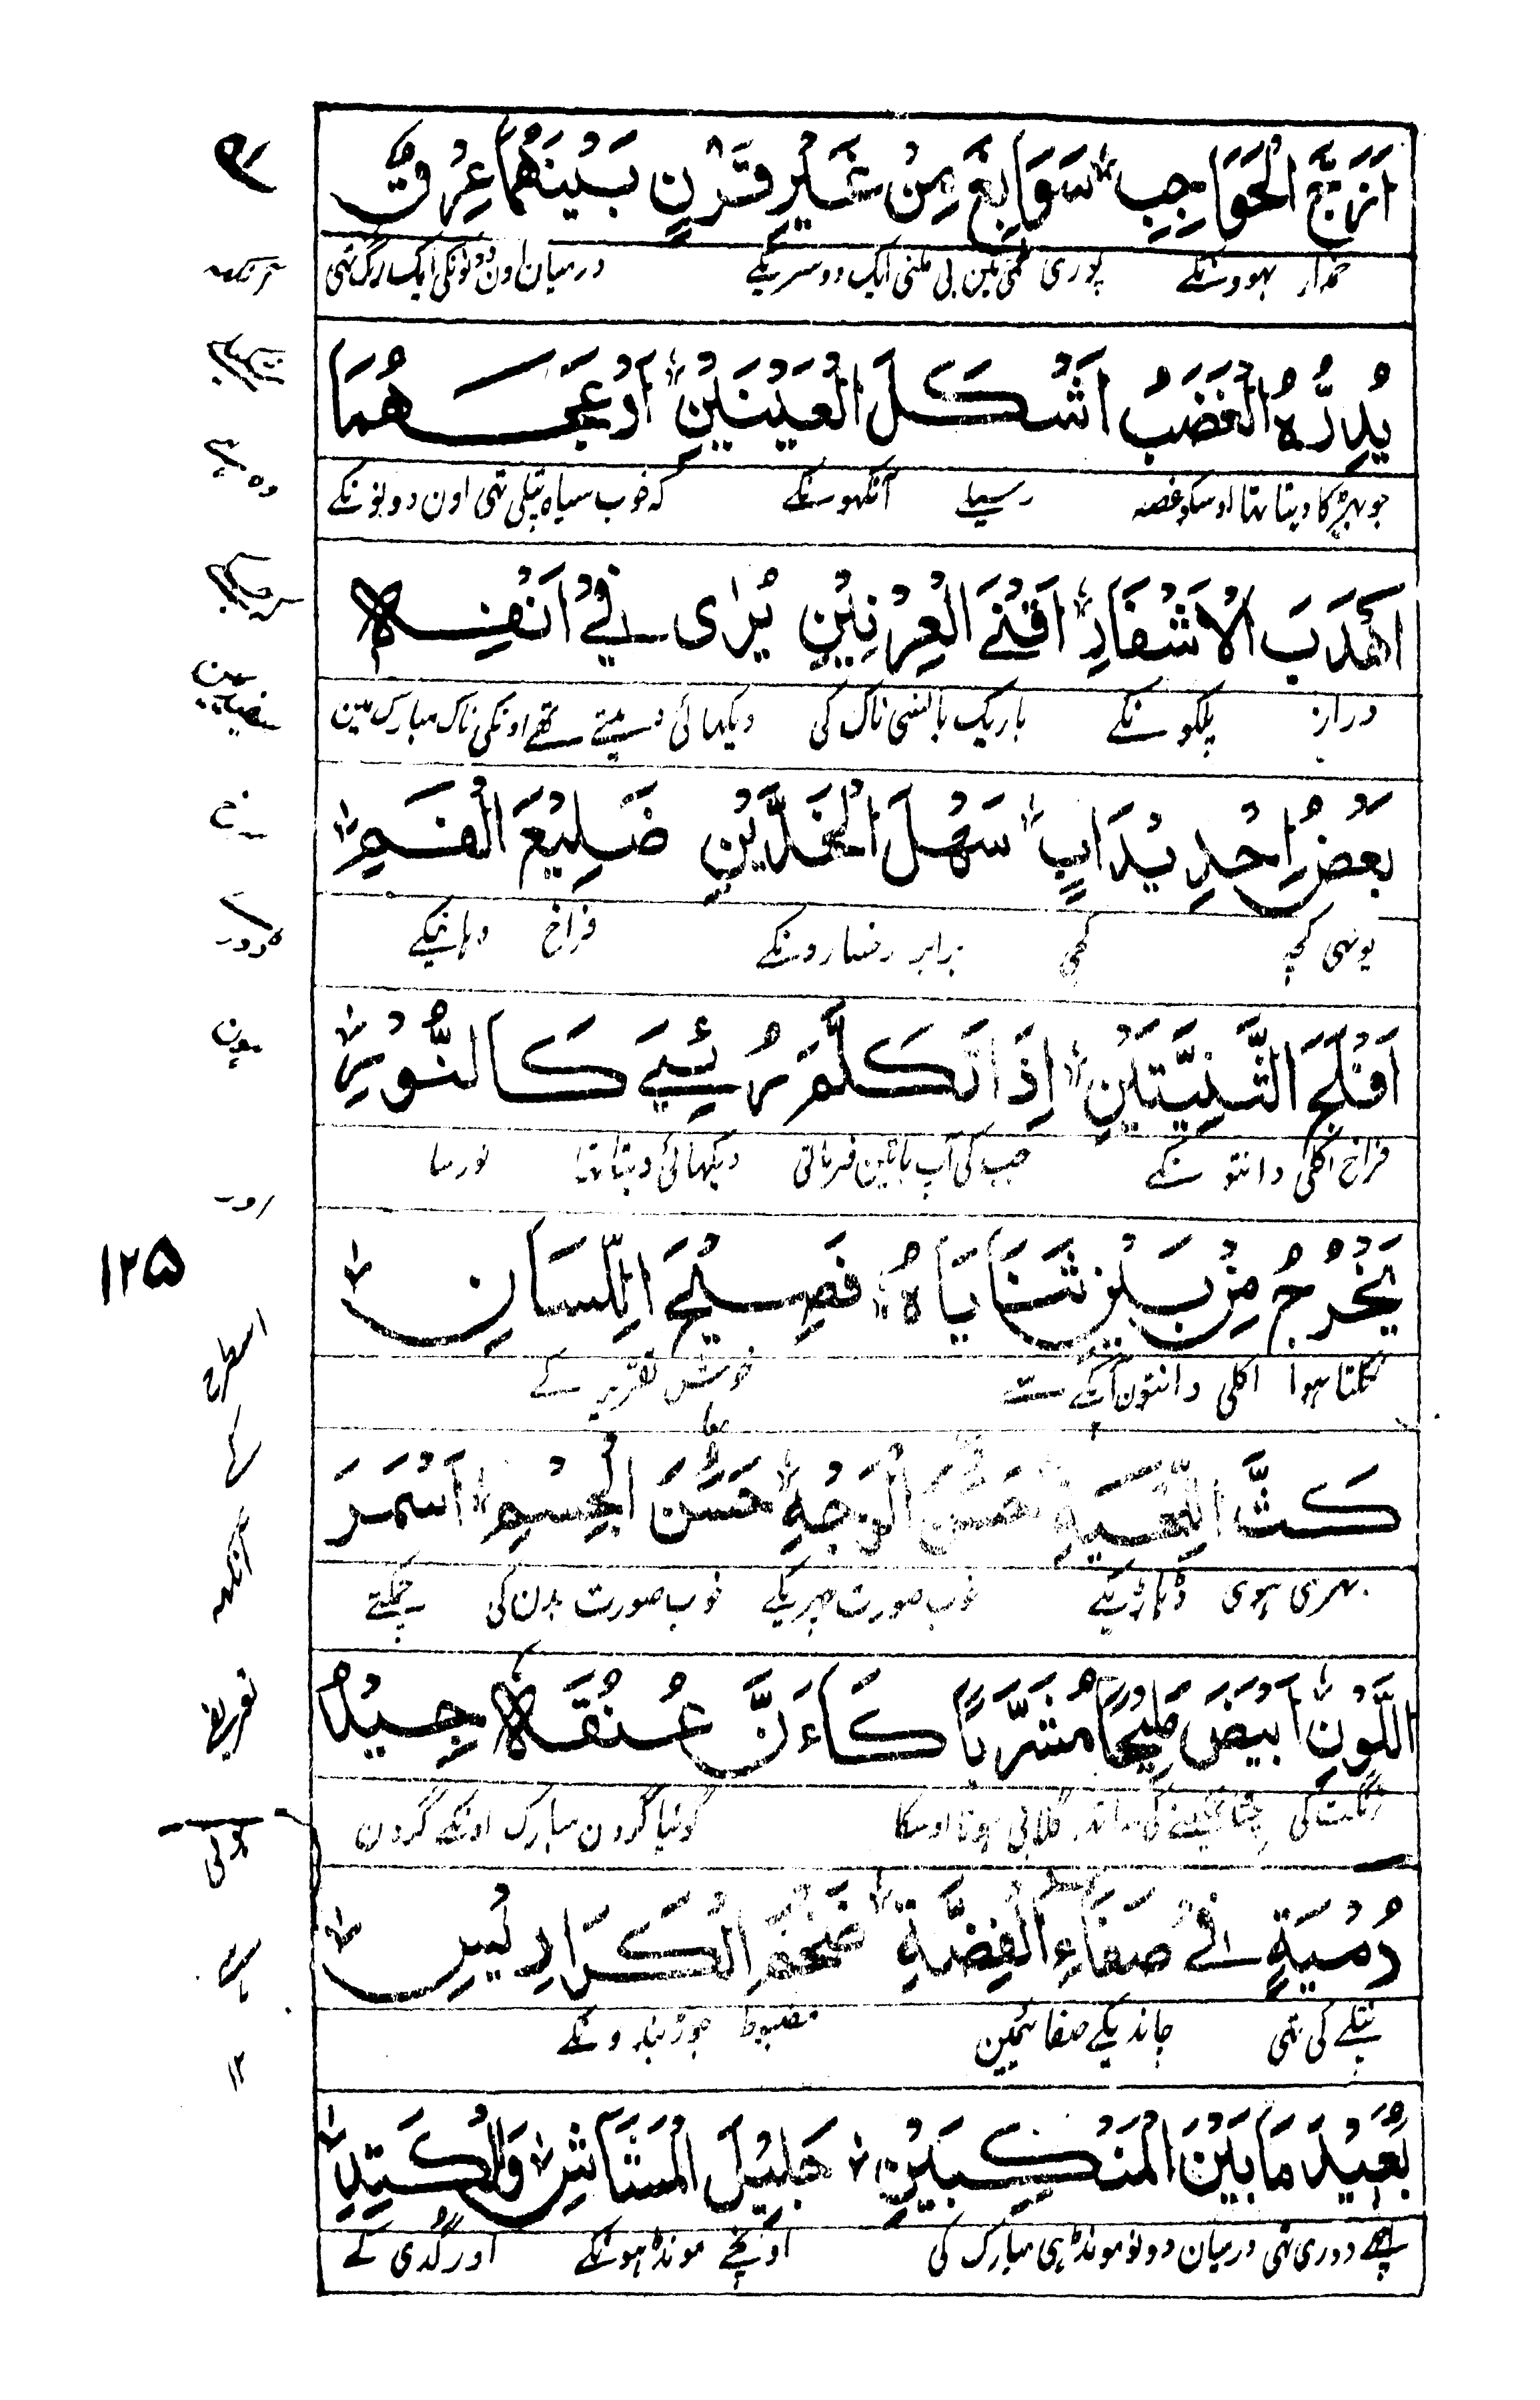 اَزَجَّ الْحَوَاجِبِ سَوَابِغَ مِنْ غَيْرِ قَرْنٍ بَيْنَهُمَا عِرْقٌ
خمدار بهوونکے پوری تهی بین بی ملنی ایک دوسریکے درمیان اون دونونکی ایک رگ تهی
يُدِرُّهُ الْغَضَبُ اَشْكَلَ الْعَيْنَيْنِ اَدْعَجَهُمَا
جو بهڑکا دیتا تها اوسکو غصہ رسیلے آنکهونکے کہ خوب سیاه پتلی تهی اون دونونکے
اَهْدَبَ الْاَشْفَارِ اَقْنَے الْعِرْنِيْنِ يُرٰى فِيْ اَنْفِهٖ
دراز پلکونکے باریک بانسی ناک کی دیکهائی دیتے تهے اونکی ناک مبارک مین
بَعْضُ اِحْدِيْدَابٍ سَهْلَ الْخَدَّيْنِ ضَلِيْعَ الْفَمِ
یونهی کچہ کجی برابر رخسارونکے فراخ دہانیکے
اَفْلَجَ الثَّنِيَّتَيْنِ اِذَا تَكَلَّمَ رُئِيَ كَالنُّوْرِ
فراخ اگلی دانتونکے جب کی آپ باتین فرماتی دیکهائی دیتا تها نور سا
يَخْرُجُ مِنْ بَيْنِ ثَنَايَاهُ فَصِيْحَ اللِّسَانِ
نکلتا ہوا اگلی دانتون آپکے سے خوش تقریر کے
كَثَّ اللِّحْيَةِ حَسَنَ الْوَجْهِ حَسَنَ الْجِسْمِ اَسْمَرَ
بهری ہوی ڈاڑہیکے خوب صورت چہریکے خوب صورت بدن کی چمکتے
اللَّوْنِ اَبْيَضَ مَلِيْحًا مُشَرَّبًا كَاَنَّ عُنُقَهٗ جِيْدُ
رنگت کی گلابی ہوتا اوسکا گویا گردن مبارک اونکے گردن
دُمْيَةٍ فِيْ صَفَاءِ الْفِضَّةِ ضَخْمَ الْكَرَادِيْسِ
پتلے کی تهی چاندیکے صفائیمین مضبوط جوڑبندونکے
بَعِيْدَ مَا بَيْنَ الْمَنْكِبَيْنِ جَلِيْلَ الْمُشَاشِ وَالْكَتِدِ
دوری تهی درمیان دونو مونڈہی مبارک کی اونچے مونڈہونکے اور گدی کے
۱۲۵
اسطرح
آنکهہ
۱۲